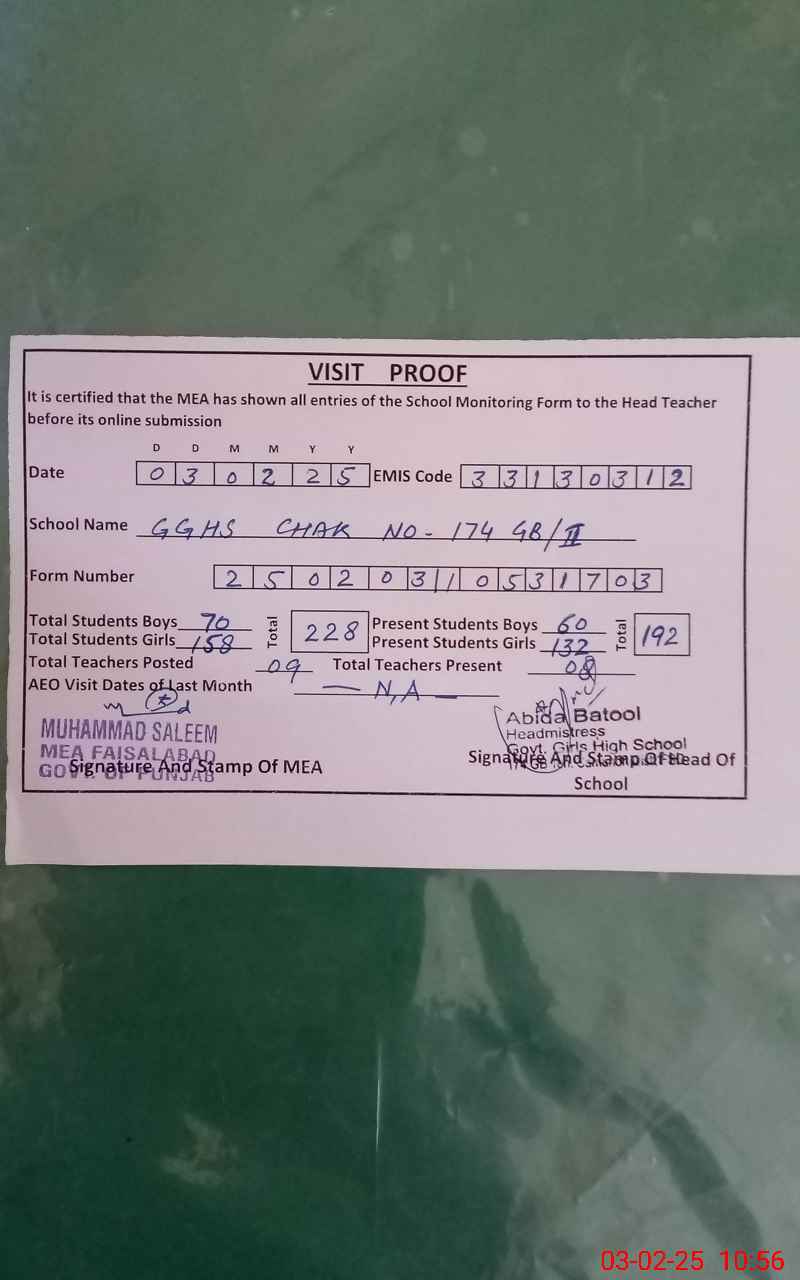 VISIT PROOF
It is certified that the MEA has shown all entries of the School Monitoring Form to the Head Teacher
before its online submission
D D M M Y Y
Date 0 3 0 2 2 5 EMIS Code 3 3 1 3 0 3 1 2
School Name GGHS CHAK NO - 174 GB/II
Form Number 2 5 0 2 0 3 1 0 5 3 1 7 0 3
Total Students Boys 70 Total 228 Present Students Boys 60 Total 192
Total Students Girls 158 Present Students Girls 132
Total Teachers Posted 09 Total Teachers Present 08
AEO Visit Dates of Last Month — N,A —
MUHAMMAD SALEEM
MEA FAISALABAD
GOVT. OF PUNJAB
Signature And Stamp Of MEA
Abida Batool
Headmistress
Govt. Girls High School
174 GB
Signature And Stamp Of Head Of
School
03-02-25 10:56